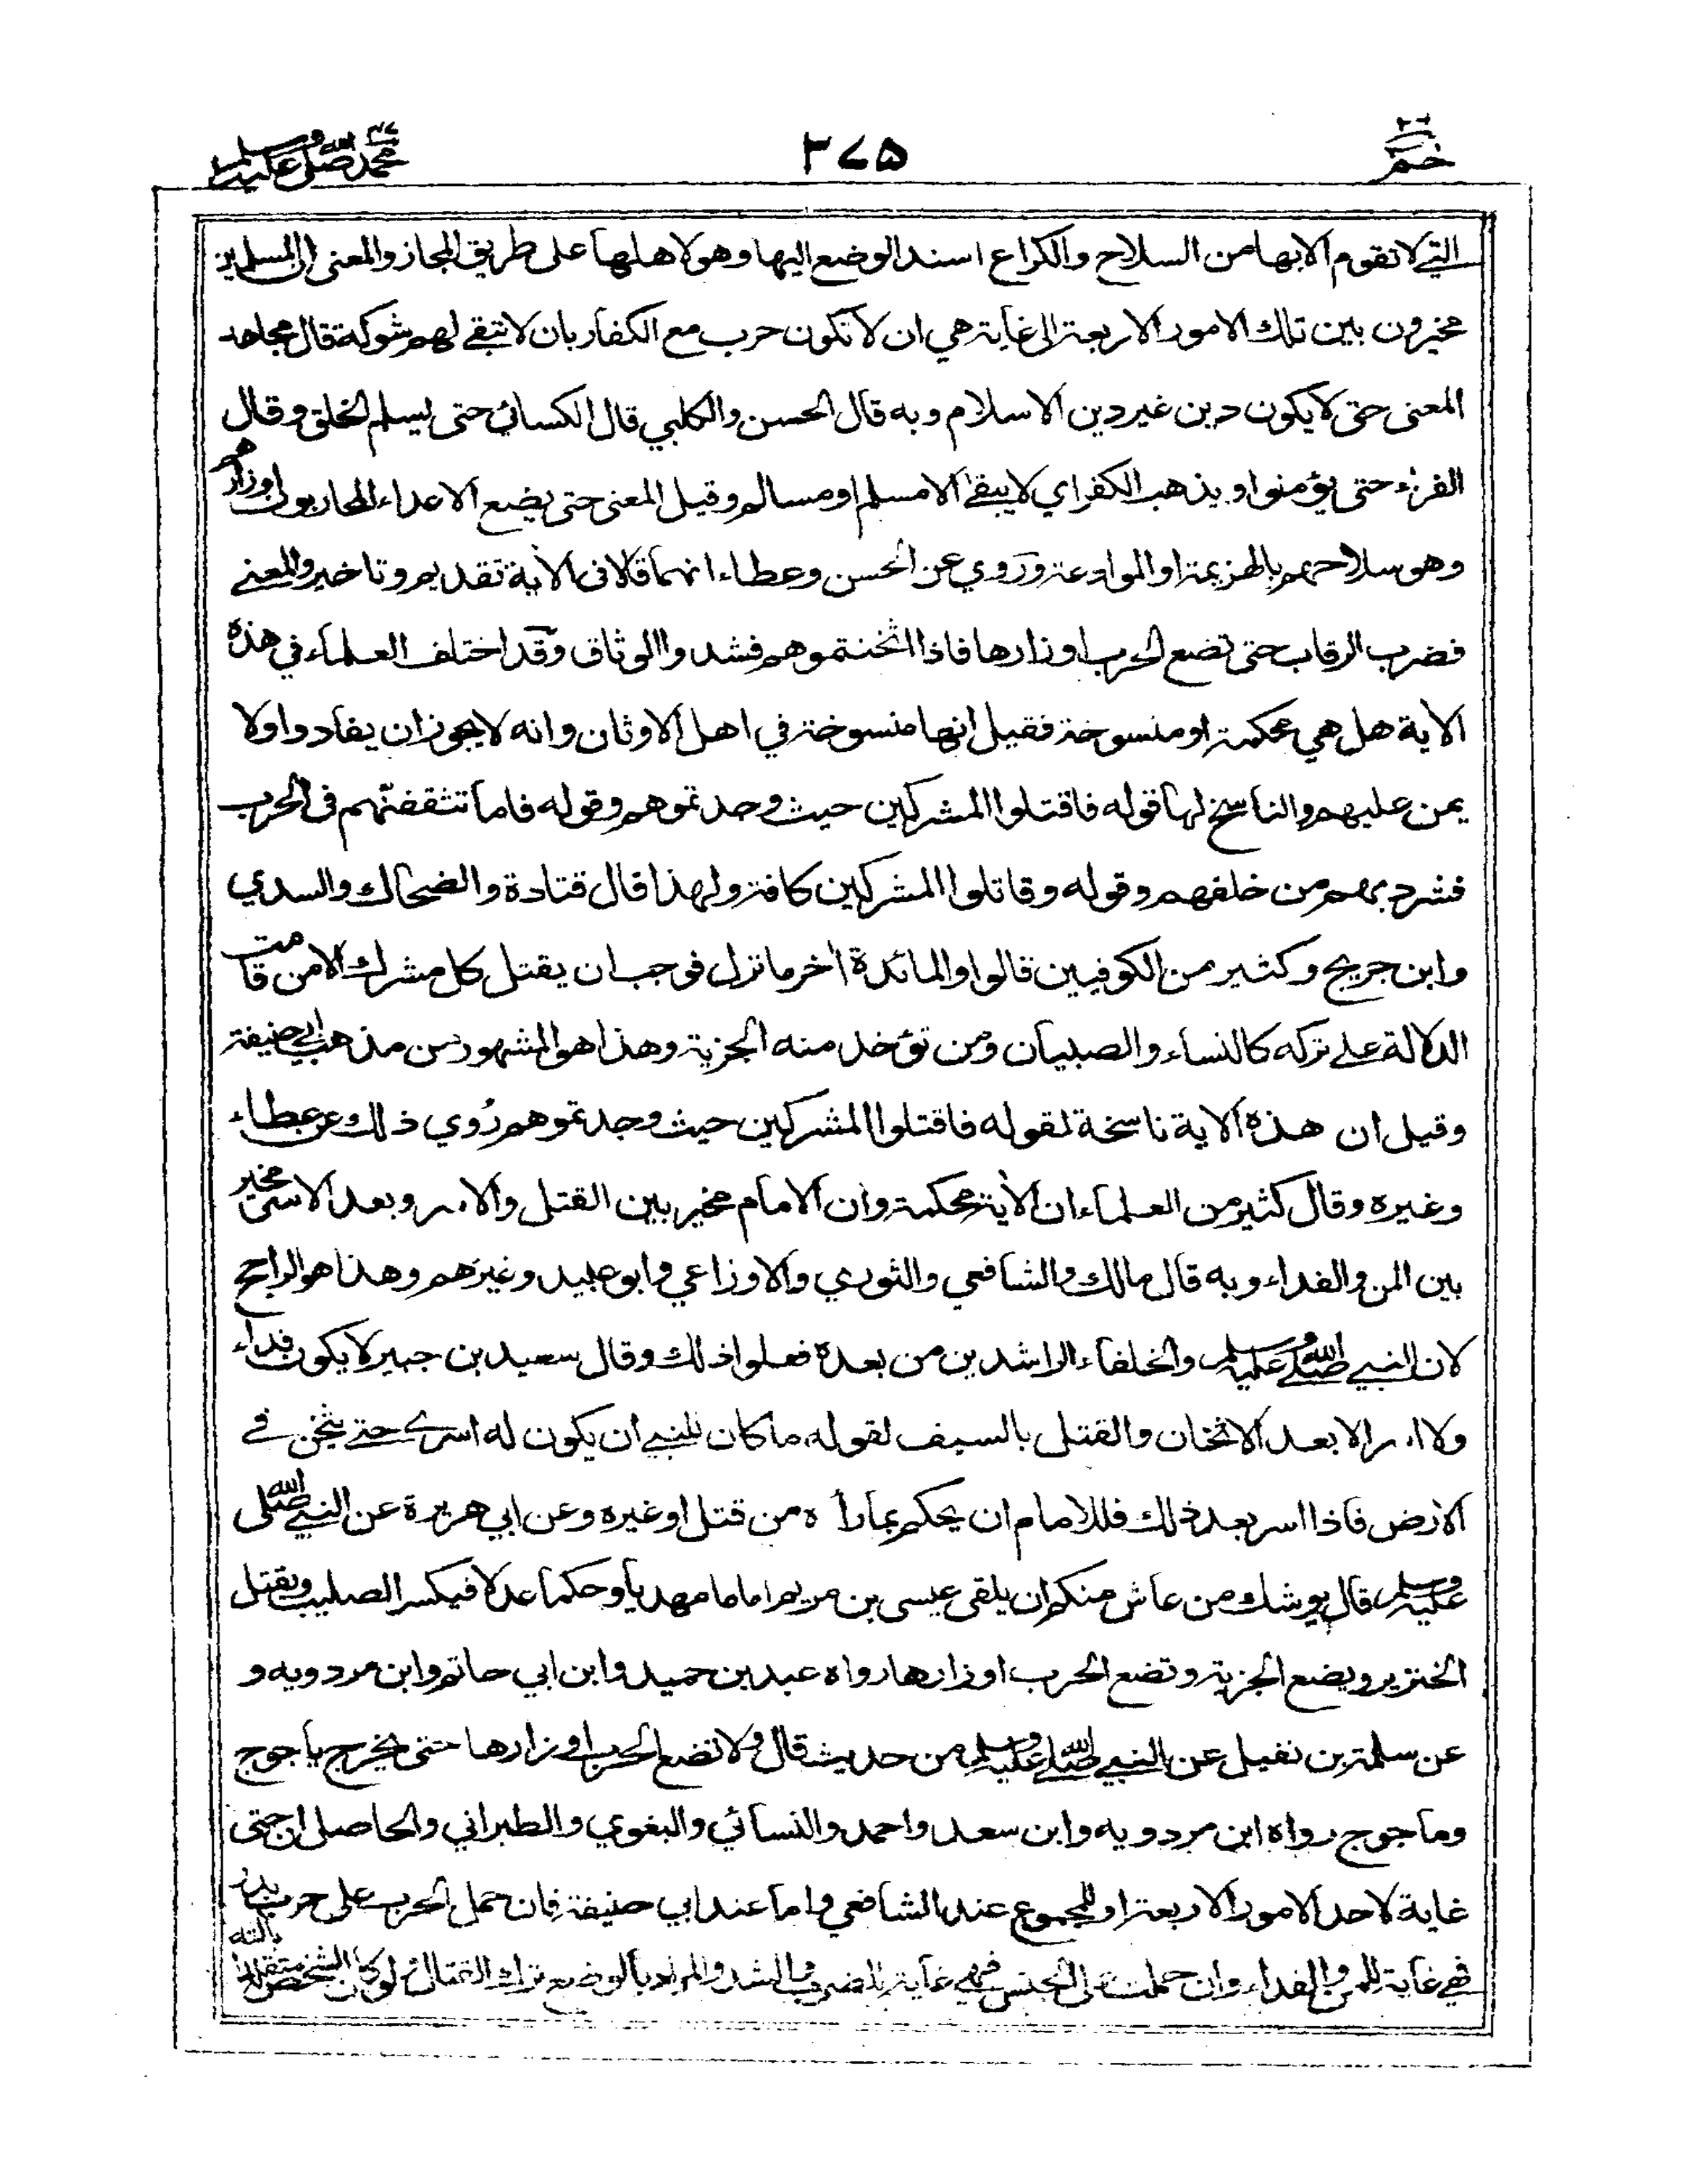 حم ٢٦ ٣٧٥ محمد صلى الله عليه وسلم ٤٧
التي لا تقوم الا بها من السلاح والكراع اسند الوضع اليها وهو لاهلها على طريق المجاز والمعنى ان المسلمين
مخيرون بين تلك الامور الاربعة الى غاية هي ان لا تكون حرب مع الكفار بان لا تبقى لهم شوكة قال مجاهد
المعنى حتى لا يكون دين غير دين الاسلام وبه قال الحسن والكلبي قال الكسائي حتى يسلم الخلق وقال
الفراء حتى يؤمنوا ويذهب الكفر اي لا يبقى الا مسلم او مسالم وقيل المعنى حتى يضع الاعداء المحاربون اوزارهم
وهو سلاحهم بالهزيمة او الموادعة وروي عن الحسن وعطاء انهما قالا في الآية تقديم وتاخير والمعنى
فضرب الرقاب حتى تضع الحرب اوزارها فاذا اثخنتموهم فشدوا الوثاق وقد اختلف العلماء في هذه
الآية هل هي محكمة او منسوخة فقيل انها منسوخة في اهل الاوثان وانه لا يجوز ان يفادوا ولا
يمن عليهم والناسخ لها قوله فاقتلوا المشركين حيث وجدتموهم وقوله فاما تثقفنهم في الحرب
فشرد بهم من خلفهم وقوله وقاتلوا المشركين كافة ولهذا قال قتادة والضحاك والسدي
وابن جريج وكثير من الكوفيين قالوا والمائدة آخر ما نزل فوجب ان يقتل كل مشرك الا من قامت
الدلالة على تركه كالنساء والصبيان ومن تؤخذ منه الجزية وهذا هو المشهور من مذهب ابي حنيفة
وقيل ان هذه الآية ناسخة لقوله فاقتلوا المشركين حيث وجدتموهم رُوي ذلك عن عطاء
وغيره وقال كثير من العلماء ان الآية محكمة وان الامام مخير بين القتل والاسر وبعد الاسر مخير
بين المن والفداء وبه قال مالك والشافعي والثوري والاوزاعي وابو عبيد وغيرهم وهذا هو الراجح
لان النبي صلى الله عليه وسلم والخلفاء الراشدين من بعده فعلوا ذلك وقال سعيد بن جبير لا يكون فداء
ولا اسر الا بعد الاثخان والقتل بالسيف لقوله ما كان للنبي ان يكون له اسرى حتى يثخن في
الارض فاذا اسر بعد ذلك فللامام ان يحكم بما رآه من قتل او غيره وعن ابي هريرة عن النبي صلى الله
عليه وسلم قال يوشك من عاش منكم ان يلقى عيسى بن مريم اماما مهديا وحكما عدلا فيكسر الصليب ويقتل
الخنزير ويضع الجزية وتضع الحرب اوزارها رواه عبد بن حميد وابن ابي حاتم وابن مردويه و
عن سلمة بن نفيل عن النبي صلى الله عليه وسلم من حديث قال ولا تضع الحرب اوزارها حتى يخرج ياجوج
وماجوج رواه ابن مردويه وابن سعد واحمد والنسائي والبغوي والطبراني والحاصل ان حتى
غاية لاحد الامور الاربعة او للمجموع عند الشافعي واما عند ابي حنيفة فان حمل الحرب على حرب بدر
فهي غاية للمن والفداء وان حملت على الجنس فهي غاية للضرب والشد والمراد بالوضع ترك القتال ولو كان الشخص متقلدا بآلته